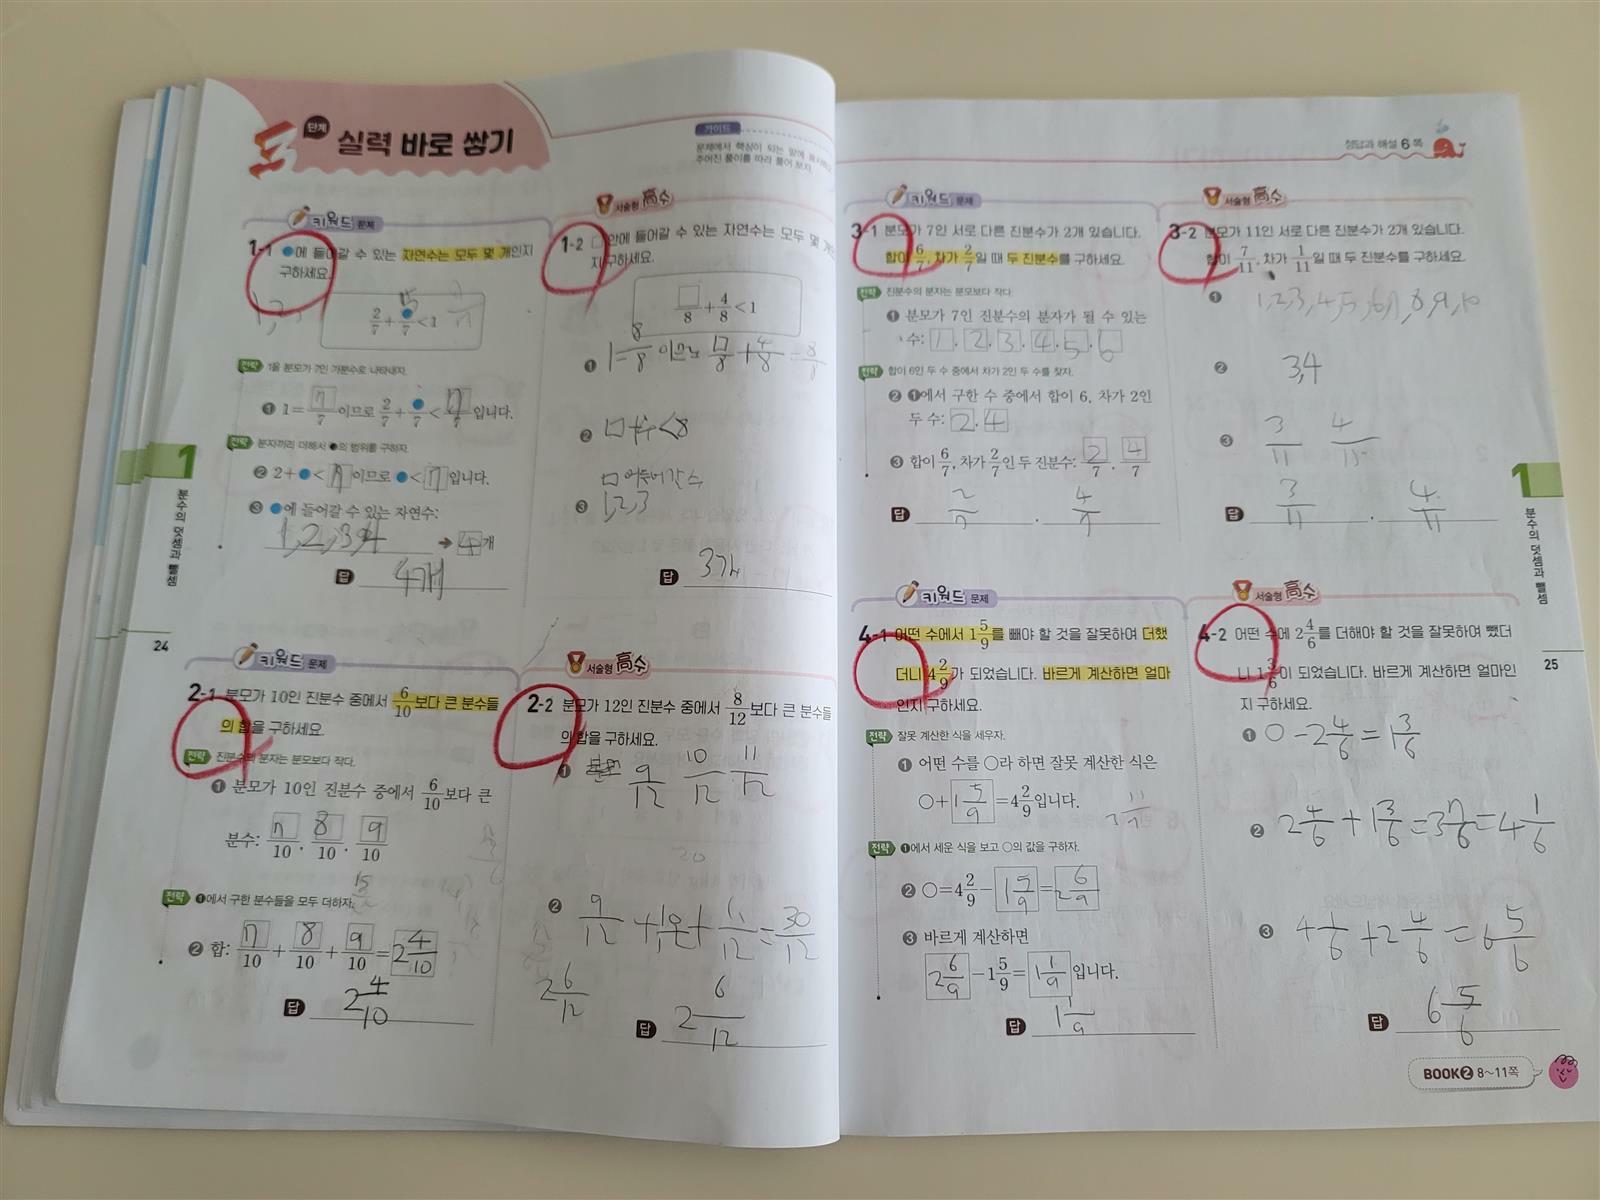 3
단계
실력 바로 쌓기
가이드
문제에서 핵심이 되는 말에 표시하고
주어진 풀이를 따라 풀어 보자.
키워드 문제
1-1 ●에 들어갈 수 있는 자연수는 모두 몇 개인지
구하세요.
2/7 + ●/7 < 1
전략 1을 분모가 7인 가분수로 나타내자.
❶ 1= 7/7 이므로 2/7 + ●/7 < 7/7 입니다.
전략 분자끼리 더해서 ●의 범위를 구하자.
❷ 2+●< 7 이므로 ●< 7 입니다.
❸ ●에 들어갈 수 있는 자연수:
1,2,3,4 → 4 개
답 4개
서술형 高수
1-2 □안에 들어갈 수 있는 자연수는 모두 몇 개인
지 구하세요.
□/8 + 4/8 < 1
❶ 1=8/8 이므로 □/8 + 4/8 = 8/8
❷ □+4<8
□에 들어갈 수
❸ 1,2,3
답 3개
1
분수의 덧셈과 뺄셈
24
키워드 문제
2-1 분모가 10인 진분수 중에서 6/10보다 큰 분수들
의 합을 구하세요.
전략 진분수의 분자는 분모보다 작다.
❶ 분모가 10인 진분수 중에서 6/10보다 큰
분수: 7/10, 8/10, 9/10
전략 ❶에서 구한 분수들을 모두 더하자.
❷ 합: 7/10 + 8/10 + 9/10 = 2 4/10
답 2 4/10
서술형 高수
2-2 분모가 12인 진분수 중에서 8/12보다 큰 분수들
의 합을 구하세요.
❶ 9/12 10/12 11/12
❷ 9/12 + 10/12 + 11/12 = 30/12
2 6/12
답 2 6/12
정답과 해설 6쪽
키워드 문제
3-1 분모가 7인 서로 다른 진분수가 2개 있습니다.
합이 6/7, 차가 2/7일 때 두 진분수를 구하세요.
전략 진분수의 분자는 분모보다 작다.
❶ 분모가 7인 진분수의 분자가 될 수 있는
수: 1, 2, 3, 4, 5, 6
전략 합이 6인 두 수 중에서 차가 2인 두 수를 찾자.
❷ ❶에서 구한 수 중에서 합이 6, 차가 2인
두 수: 2, 4
❸ 합이 6/7, 차가 2/7인 두 진분수: 2/7, 4/7
답 2/7, 4/7
서술형 高수
3-2 분모가 11인 서로 다른 진분수가 2개 있습니다.
합이 7/11, 차가 1/11일 때 두 진분수를 구하세요.
❶ 1,2,3,4,5,6,7,8,9,10
❷ 3,4
❸ 3/11 4/11
답 3/11, 4/11
키워드 문제
4-1 어떤 수에서 1 5/9를 빼야 할 것을 잘못하여 더했
더니 4 2/9가 되었습니다. 바르게 계산하면 얼마
인지 구하세요.
전략 잘못 계산한 식을 세우자.
❶ 어떤 수를 ○라 하면 잘못 계산한 식은
○+ 1 5/9 =4 2/9입니다.
전략 ❶에서 세운 식을 보고 ○의 값을 구하자.
❷ ○=4 2/9 − 1 5/9 = 2 6/9
❸ 바르게 계산하면
2 6/9 −1 5/9= 1 1/9 입니다.
답 1 1/9
서술형 高수
4-2 어떤 수에 2 4/6를 더해야 할 것을 잘못하여 뺐더
니 1 3/6이 되었습니다. 바르게 계산하면 얼마인
지 구하세요.
❶ ○−2 4/6=1 3/6
❷ 2 4/6+1 3/6=3 7/6=4 1/6
❸ 4 1/6+2 4/6=6 5/6
답 6 5/6
1
분수의 덧셈과 뺄셈
25
BOOK❷ 8~11쪽